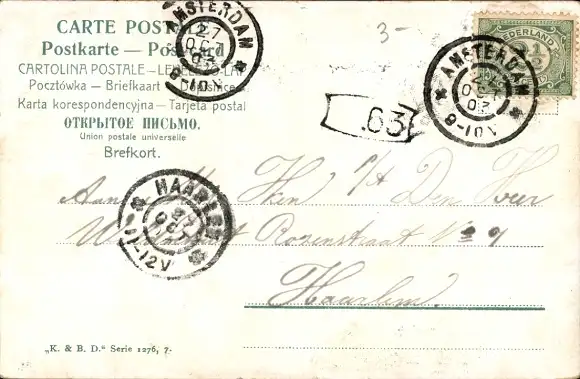 CARTE POSTALE
Postkarte — Postcard
CARTOLINA POSTALE — LEVELEZO-LAP
Pocztówka — Briefkaart — Dopisnice
Karta korespondencyjna — Tarjeta postal
ОТКРЫТОЕ ПИСЬМО.
Union postale universelle
Brefkort.
AMSTERDAM
27
OCT
03
8-10V
3-
NEDERLAND
2½
AMSTERDAM
OCT
03
8-10V
.03
HAARLEM
OCT
11-12V
Den Heer
Rozenstraat No 9
Haarlem.
„K. & B. D." Serie 1276, 7.